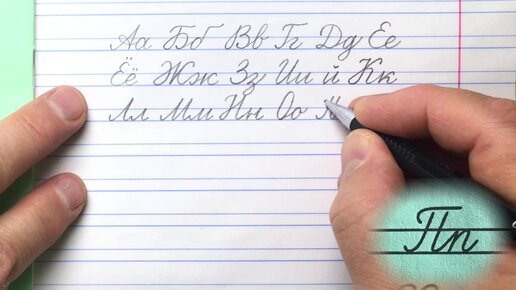 Аа Бб Вв Гг Дд Ее
Ёё Жж Зз Ии й Кк
Лл Мм Нн Оо
Пп